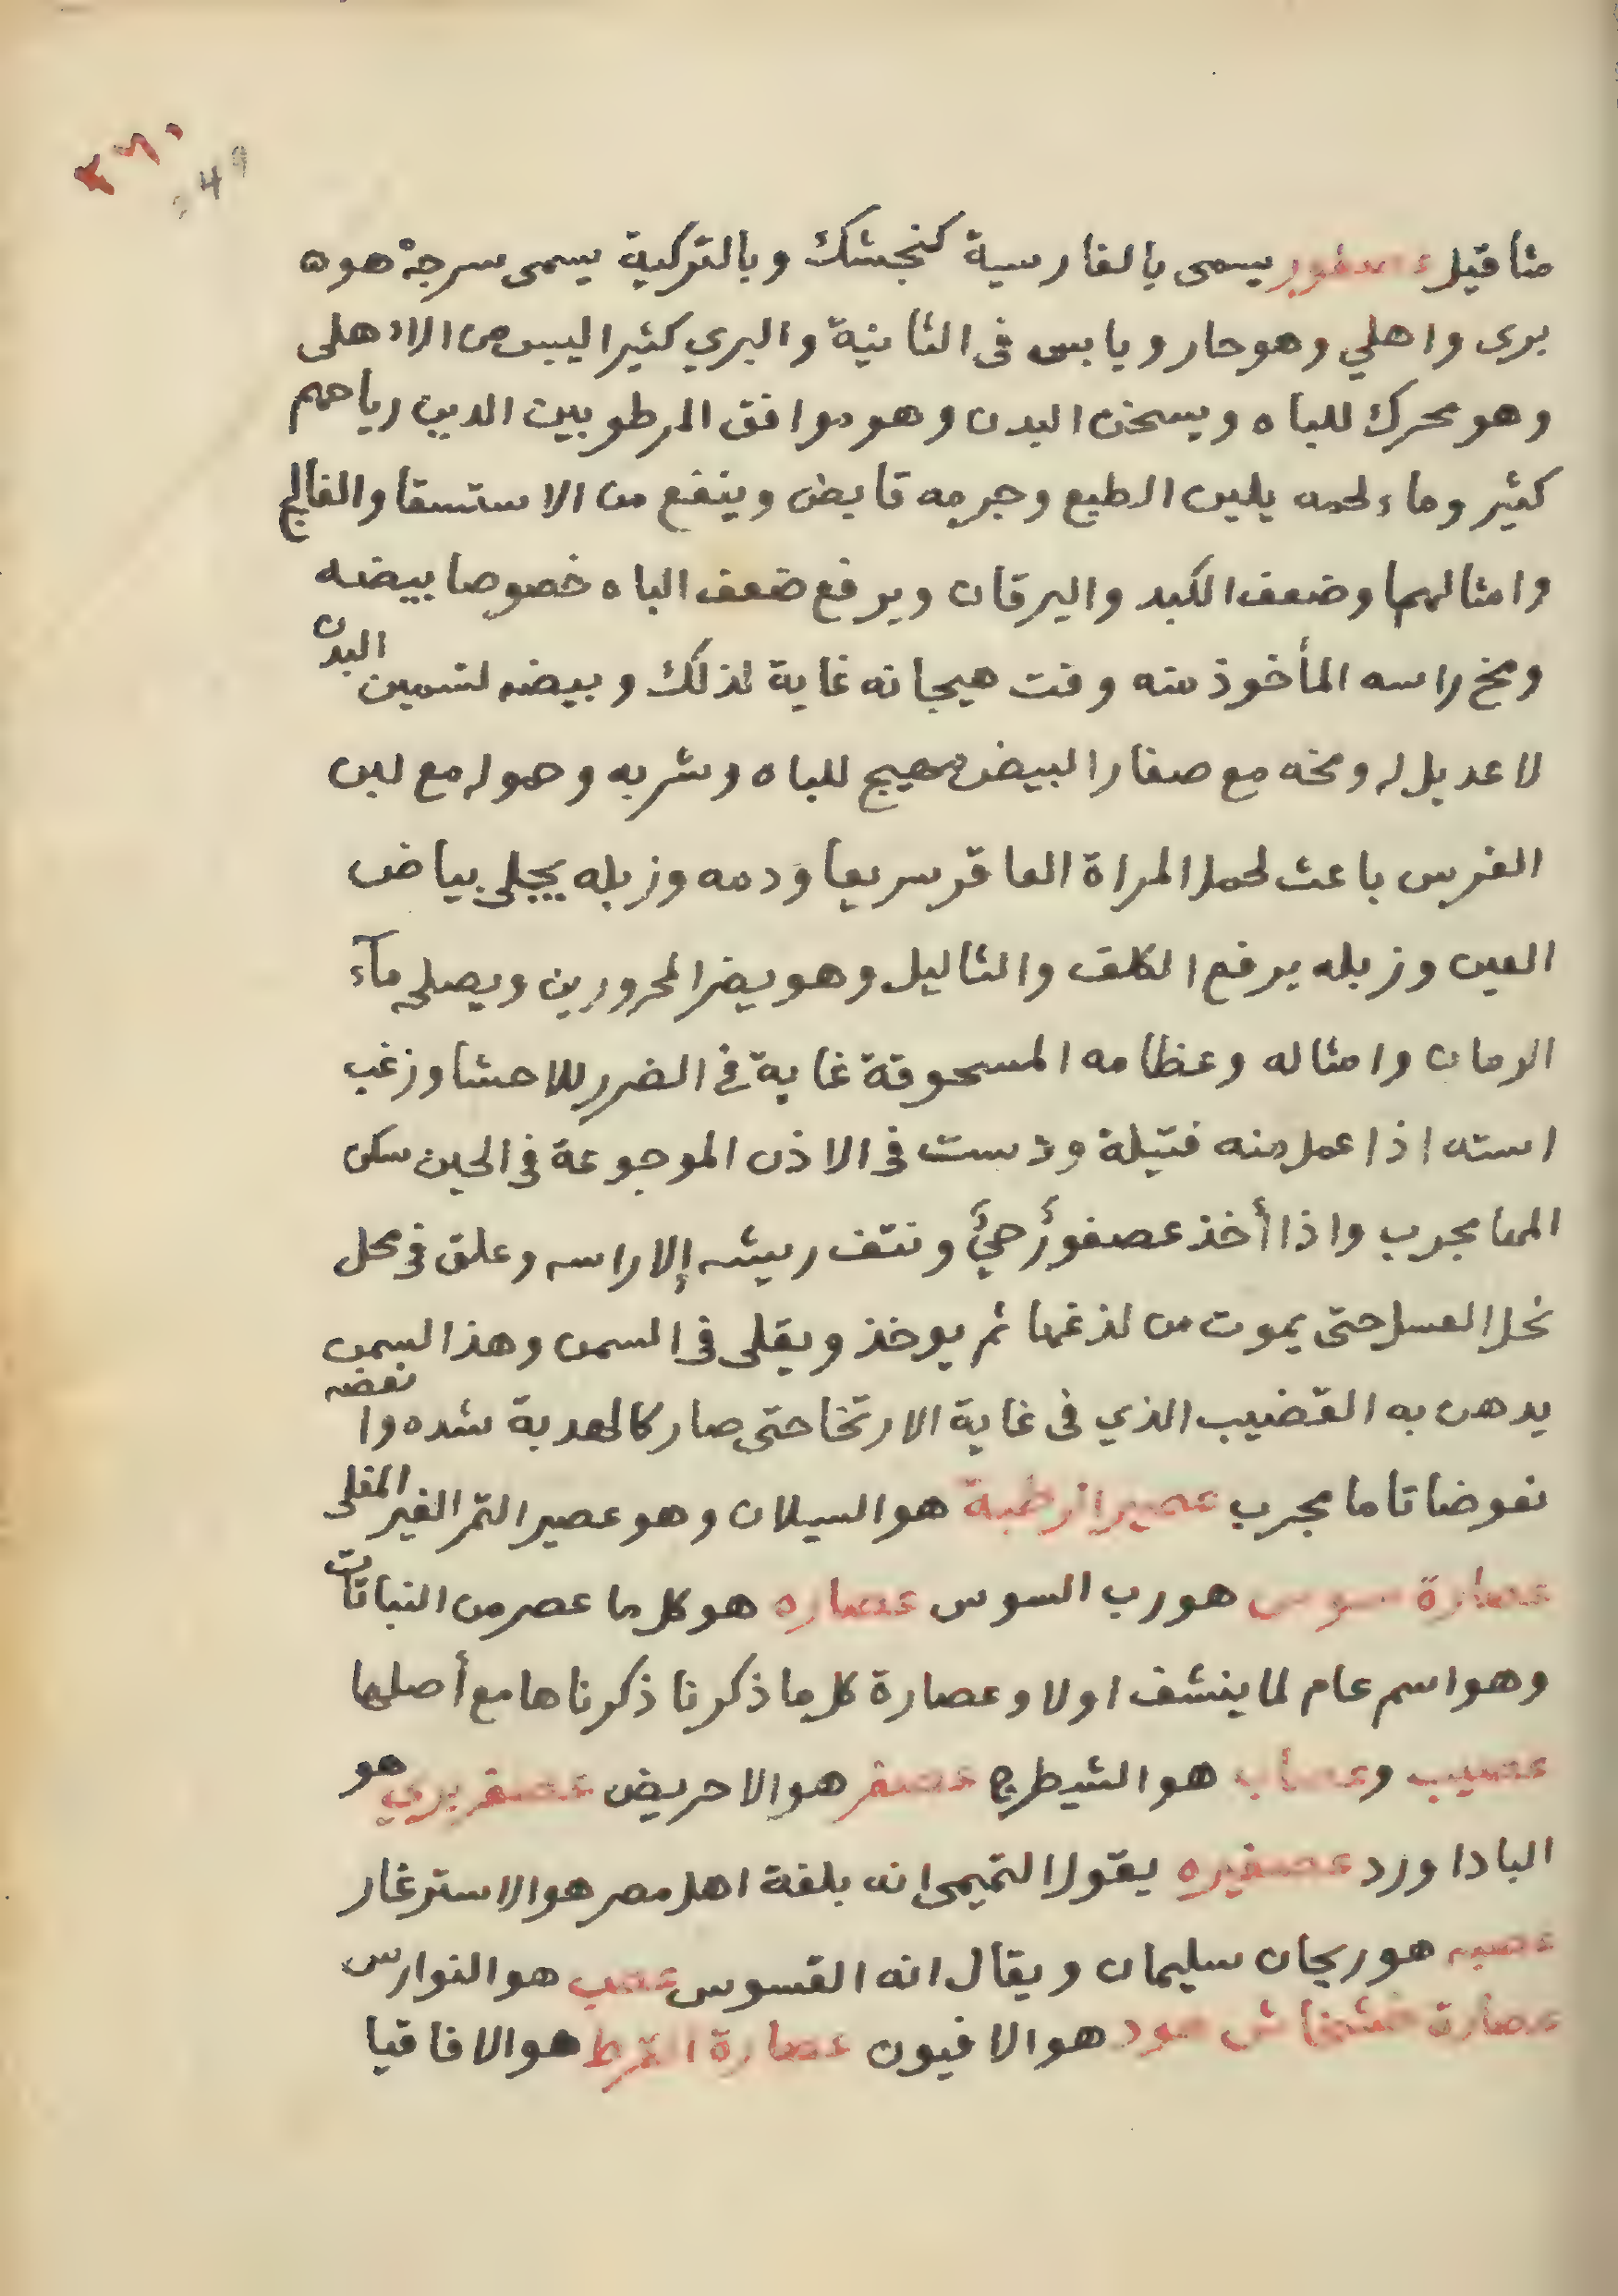 ٢٦٠
249
مثاقيل عصفور يسمى بالفارسية كنجشك وبالتركية يسمى سرجة هوه
برى واهلي وهو حار ويابس فى الثانية والبري كثير اليبس من الاهلى
وهو محرك للباه ويسخن البدن وهو موافق المرطوبين الدين رياحهم
كثير وماء لحمه يلين الطبع وجرمه قابض وينفع من الاستسقا والفالج
وامثالهما وضعف الكبد واليرقان ويرفع ضعف الباه خصوصا بيضه
ومخ راسه المأخوذ منه وقت هيجانه غاية لذلك وبيضه لتسمين البدن
لا عديل له ومخه مع صفار البيض مهيج للباه وشربه وحموله مع لبن
الفرس باعث لحمل المراة العاقر سريعا ودمه وزبله يجلى بياض
العين وزبله يرفع الكلف والثاليل وهو يضر المحرورين ويصلحه مآء
الرمان وامثاله وعظامه المسحوقة غاية فى الضرر للاحشا وزغب
استه اذا عمل منه فتيلة ودست فى الاذن الموجوعة فى الحين سكن
المها مجرب واذا أخذ عصفورٌ حيٌ ونتف ريشه إلا راسه وعلق فى محل
نحل العسل حتى يموت من لذغها ثم يوخذ ويقلى فى السمن وهذا السمن
يدهن به القضيب الذي فى غاية الارتخا حتى صار كالهدبة شده وانعضه
نعوضا تاما مجرب عصير الرطبة هو السيلان وهو عصير التمر الغير المغلى
عصارة سوس هو رب السوس عصاره هو كل ما عصر من النباتات
وهو اسم عام لما ينشف اولا وعصارة كل ما ذكرنا ذكرناها مع أصلها
عصيب وعصاب هو الشيطرج عصفر هو الاحريض عصفر بري هو
البادا ورد عصفيره يقول التميمى انه بلغة اهل مصر هو الاسترغار
عصبه هو ريحان سليمان ويقال انه القسوس عصب هو النوارس
عصارة خشخاش سود هو الافيون عصارة القرط هو الاقاقيا